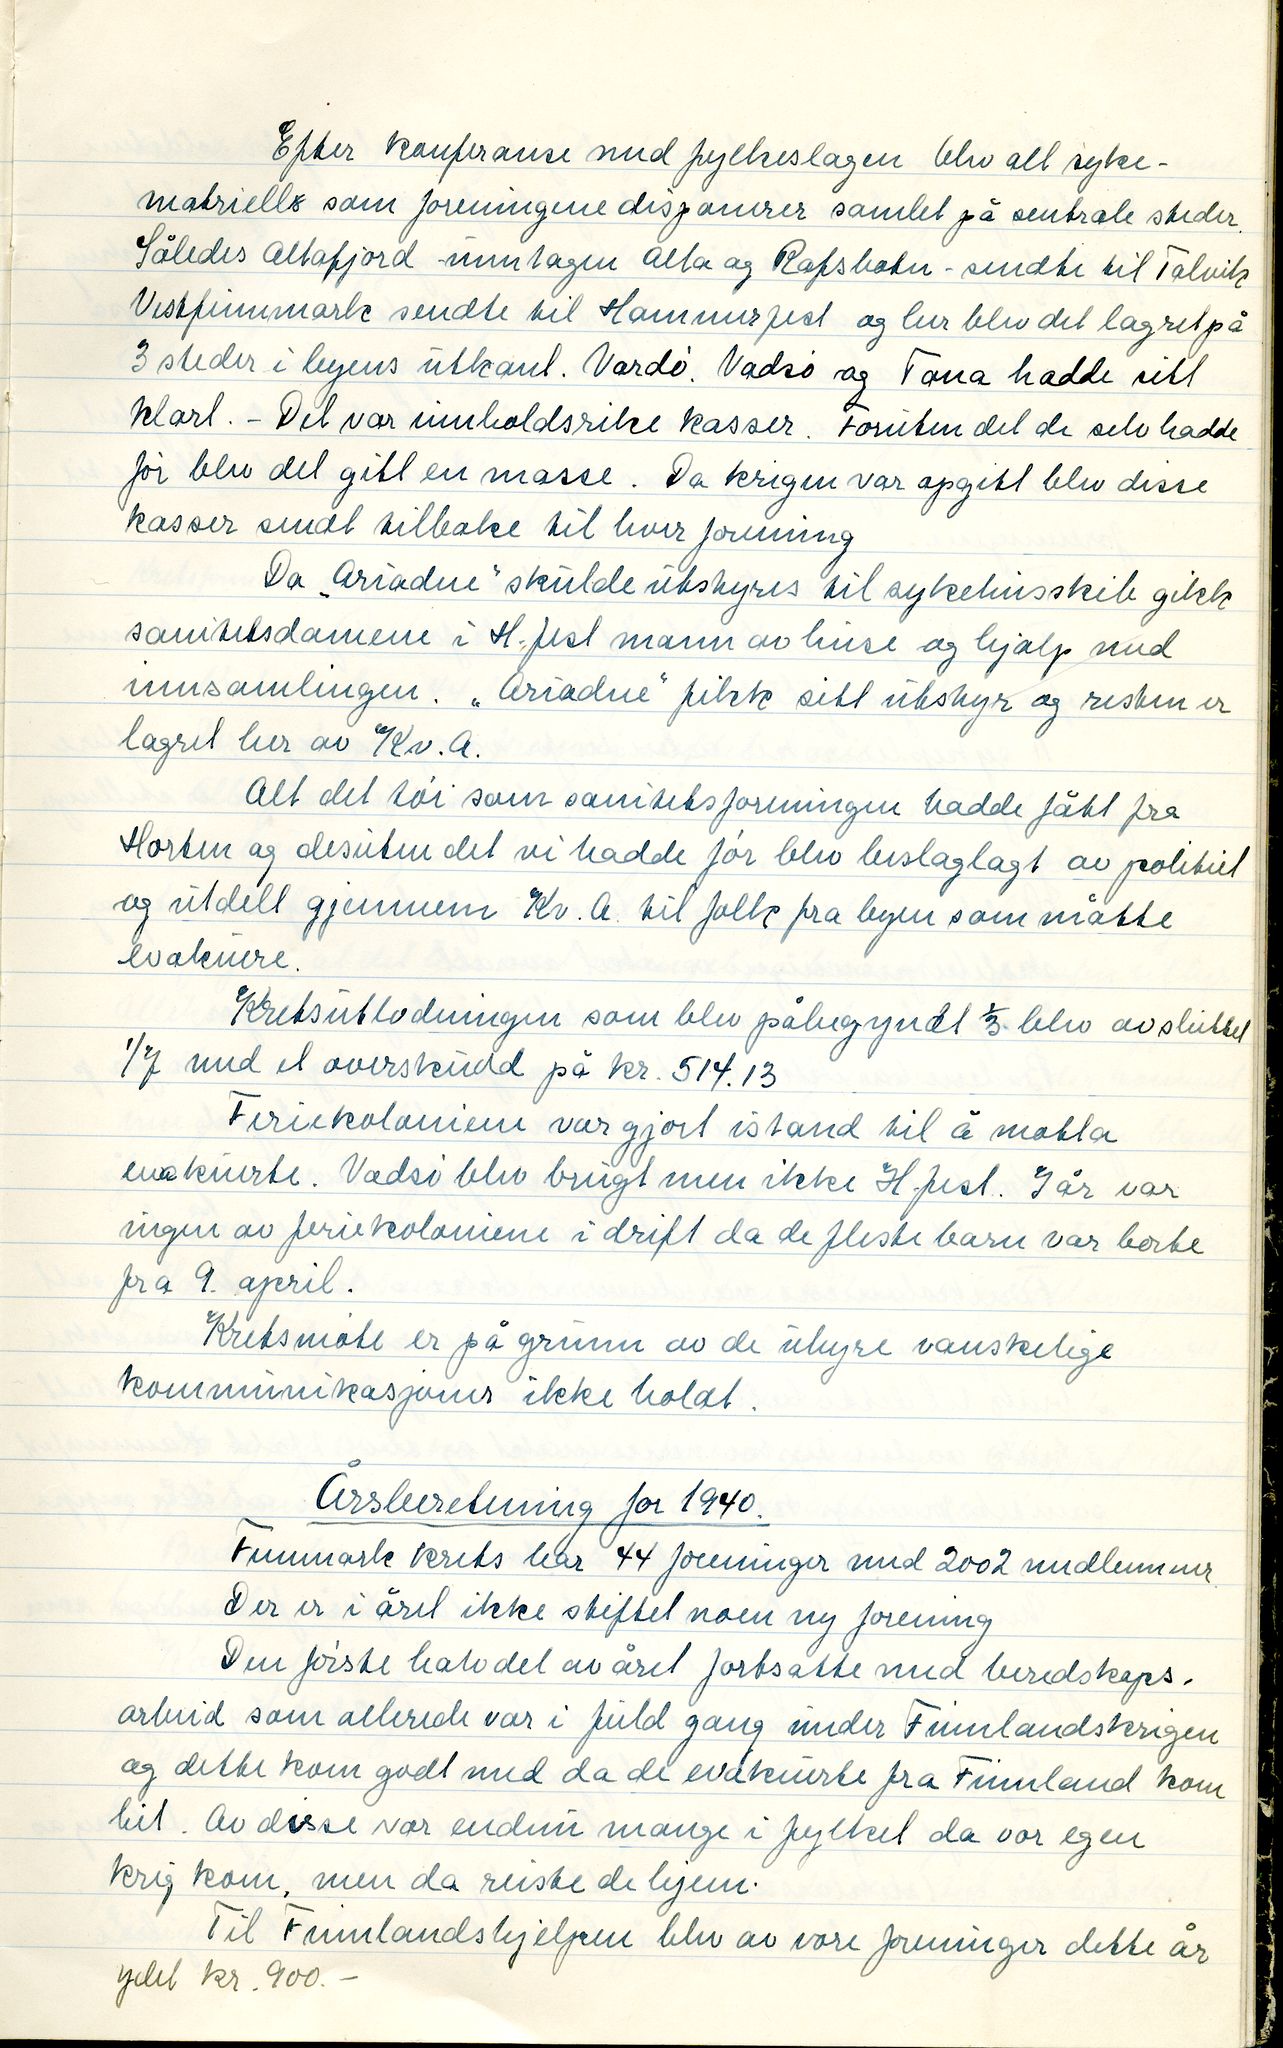 Efter konferanse med fylkeslagen blev alt syke-
matriells som foreningene disponerer samlet på sentrale steder.
Således Altafjord -unntagen Alta og Rafsbotn- sendte til Talvik
Vestfinnmark sendte til Hammerfest og her blev det lagret på
3 steder i byens utkant. Vardö. Vadsö og Tana hadde sitt
klart. - Det var innholdsrike kasser. Foruten det de selv hadde
för blev det gitt en masse. Da krigen var opgitt blev disse
kasser sendt tilbake til hver forening
Da "Ariadne" skulde utstyres til sykehusskib gikk
sanitetsdamene i H.fest mann av huse og hjalp med
innsamlingen. "Ariadne" fikk sitt utstyr og resten er
lagret her av Kv. A.
Alt det töi som sanitetsforeningen hadde fått fra
Horten og desuten det vi hadde för blev beslaglagt av politiet
og utdelt gjennem Kv. A. til folk fra byen som måtte
evakuere.
Kretsutlodningen som blev påbegyndt 1/3 blev avsluttet
1/7 med et overskudd på kr. 514.13
Feriekoloniene var gjort istand til å motta
evakuerte. Vadsö blev brugt men ikke H.fest. I år var
ingen av feriekoloniene i drift da de fleste barn var borte
fra 9. april.
Kretsmöte er på grunn av de uhyre vanskelige
kommunikasjoner ikke holdt.
Årsberetning for 1940.
Finnmark krets har 44 foreninger med 2002 medlemmer
Der er i året ikke stiftet noen ny forening
Den förste halvdel av året fortsatte med beredskaps-
arbeid som allerede var i fuld gang under Finnlandskrigen
og dette kom godt med da de evakuerte fra Finnland kom
hit. Av disse var endnu mange i fylket da vor egen
krig kom, men da reiste de hjem.
Til Finnlandshjelpen blev av vore foreninger dette år
ydet kr. 900.-